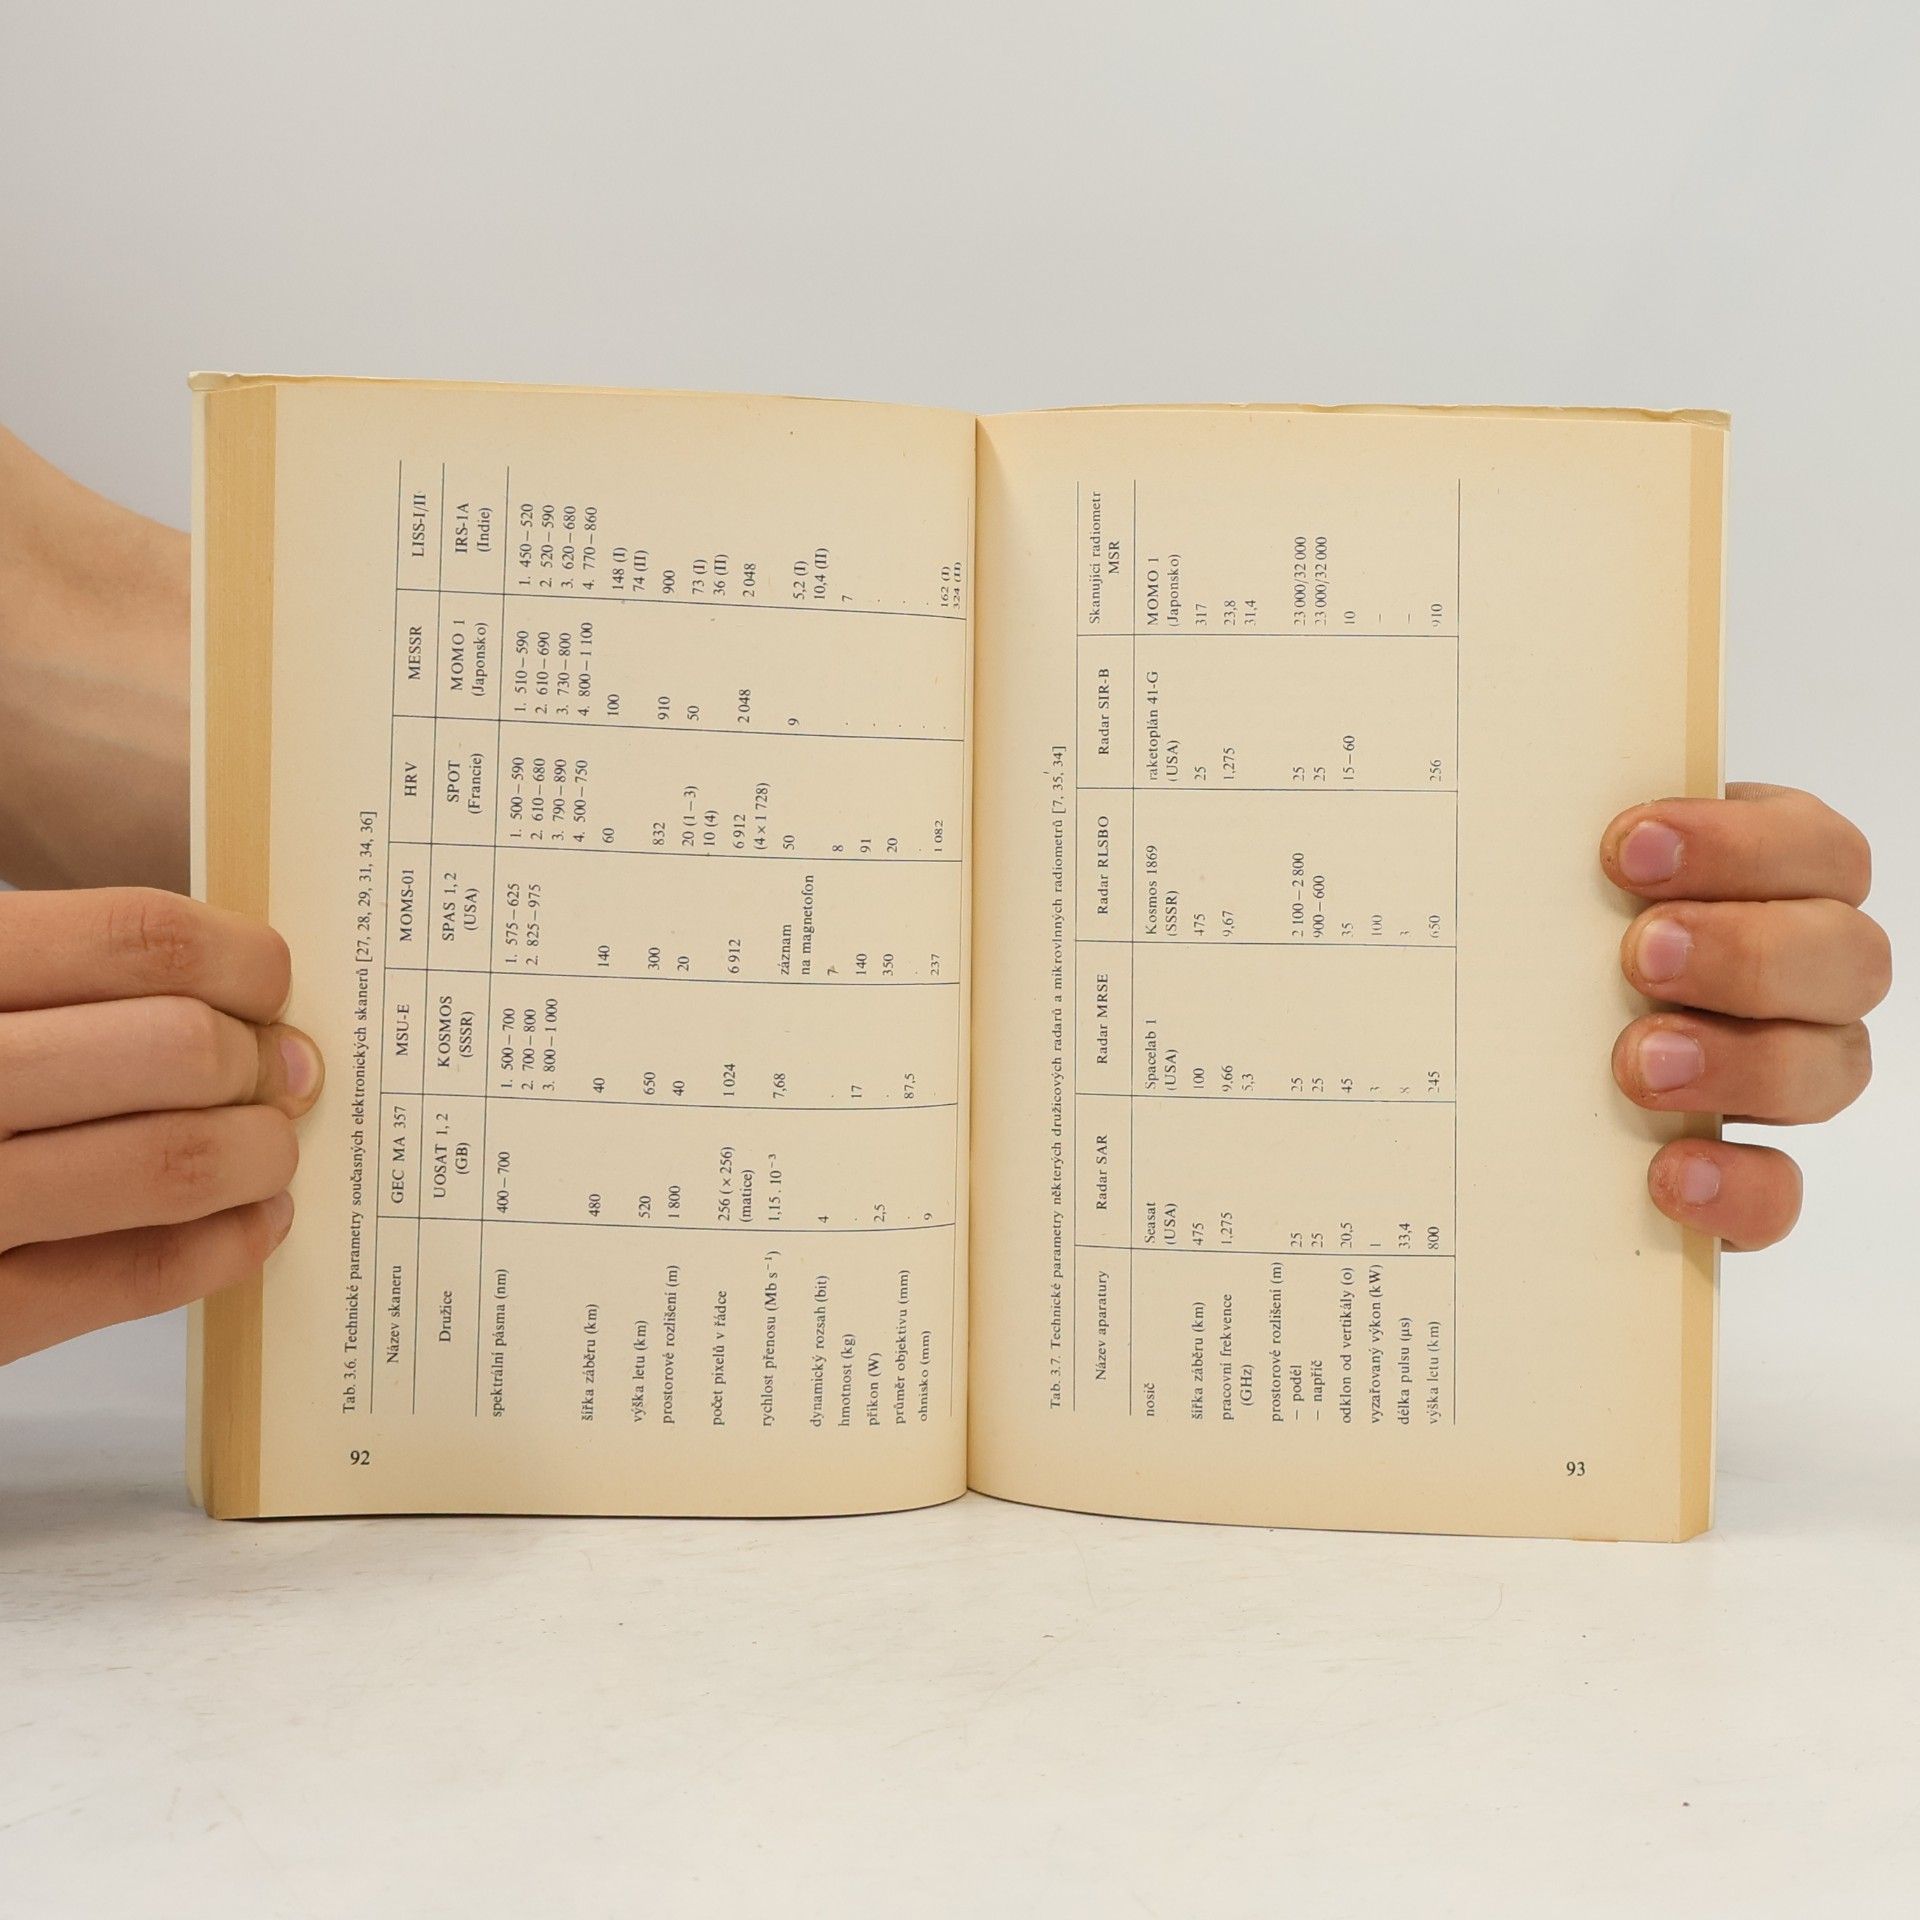 92
Tab. 3.6. Technické parametry současných elektronických skanerů [27, 28, 29, 31, 34, 36]
Název skaneru GEC MA 357 MSU-E MOMS-01 HRV MESSR LISS-I/II
Družice UOSAT 1, 2 KOSMOS SPAS 1, 2 SPOT MOMO 1 IRS-1A
(GB) (SSSR) (USA) (Francie) (Japonsko) (Indie)
spektrální pásma (nm) 400–700 1. 500–700 1. 575–625 1. 500–590 1. 510–590 1. 450–520
2. 700–800 2. 825–975 2. 610–680 2. 610–690 2. 520–590
3. 800–1 000 3. 790–890 3. 730–800 3. 620–680
4. 500–750 4. 800–1 100 4. 770–860
šířka záběru (km) 480 40 140 60 100 148 (I)
74 (II)
výška letu (km) 520 650 300 832 910 900
prostorové rozlišení (m) 1 800 40 20 20 (1–3) 50 73 (I)
10 (4) 36 (II)
počet pixelů v řádce 256 (× 256) 1 024 6 912 6 912 2 048 2 048
(matice) (4 × 1 728)
rychlost přenosu (Mb s⁻¹) 1,15 . 10⁻³ 7,68 záznam 50 9 5,2 (I)
na magnetofon 10,4 (II)
dynamický rozsah (bit) 4 . 7 8 . 7
hmotnost (kg) . 17 140 91 . .
příkon (W) 2,5 . 350 20 . .
průměr objektivu (mm) . 87,5 . . . .
ohnisko (mm) 9 237 1 082 . 162 (I)
324 (II)
Tab. 3.7. Technické parametry některých družicových radarů a mikrovlnných radiometrů [7, 35, 34]
Název aparatury Radar SAR Radar MRSE Radar RLSBO Radar SIR-B Skanující radiometr
MSR
nosič Seasat Spacelab 1 Kosmos 1869 raketoplán 41-G MOMO 1
(USA) (USA) (SSSR) (USA) (Japonsko)
šířka záběru (km) 475 100 475 25 317
pracovní frekvence 1,275 9,66 9,67 1,275 23,8
(GHz) 5,3 31,4
prostorové rozlišení (m)
– podél 25 25 2 100–2 800 25 23 000/32 000
– napříč 25 25 900–600 25 23 000/32 000
odklon od vertikály (o) 20,5 45 35 15–60 10
vyzařovaný výkon (kW) 1 3 100 –
délka pulsu (µs) 33,4 8 3 –
výška letu (km) 800 245 650 256 910
93